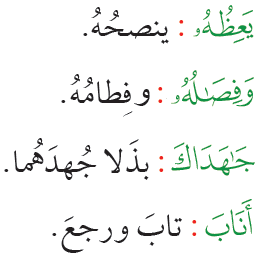 يَعِظُهُۥ : ينصحُهُ.
وَفِصَـٰلُهُۥ : وفِطامُهُ.
جَـٰهَدَاكَ : بذلا جُهدَهُما.
أَنَابَ : تابَ ورجعَ.